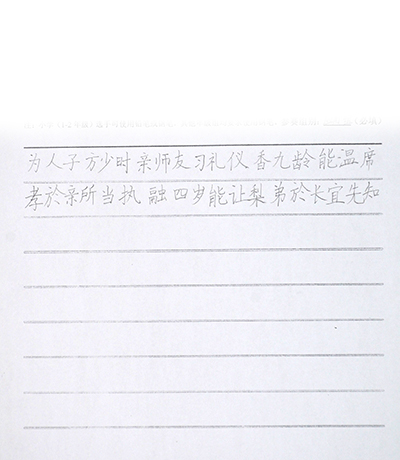 为人子方少时亲师友习礼仪香九龄能温席
孝於亲所当执 融四岁能让梨 弟於长宜先知